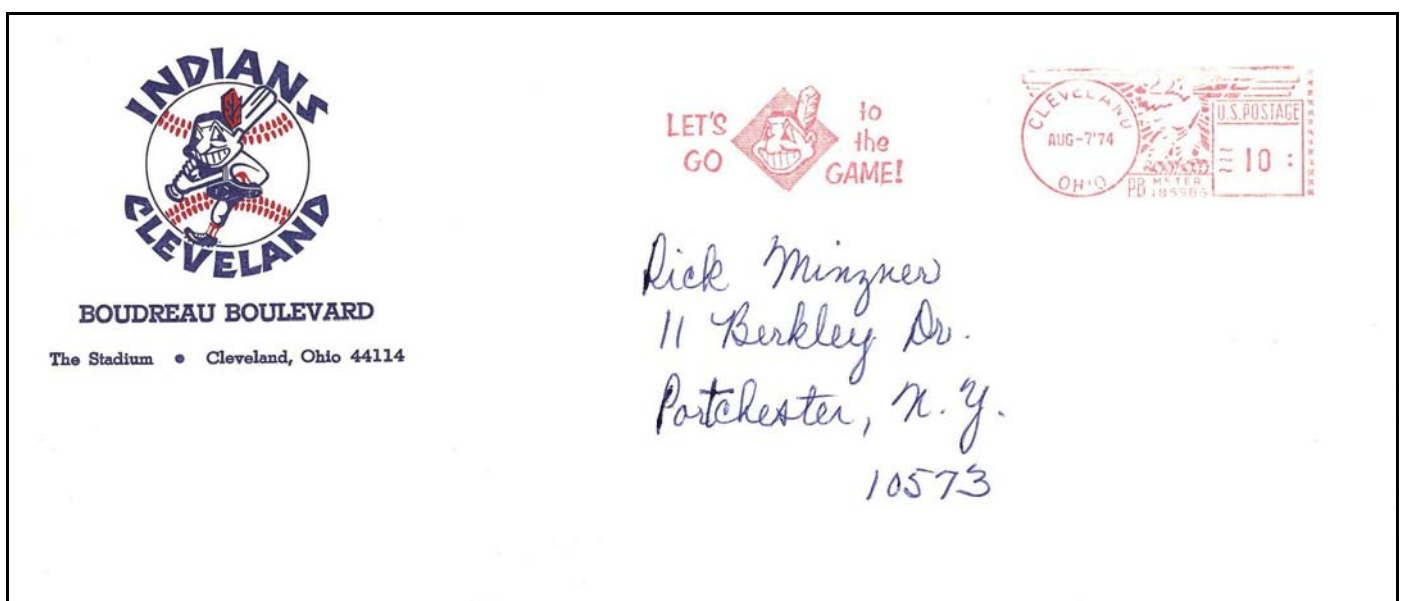 INDIANS
CLEVELAND
BOUDREAU BOULEVARD
The Stadium • Cleveland, Ohio 44114
LET'S GO to the GAME!
CLEVELAND
AUG-7'74
OHIO
U.S.POSTAGE
10
PB METER
Rick Minzner
11 Berkley Dr.
Portchester, N.Y.
10573